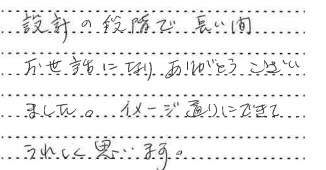 設計の段階で長い間
お世話になりありがとうござい
ました。イメージ通りにできて
うれしく思います。